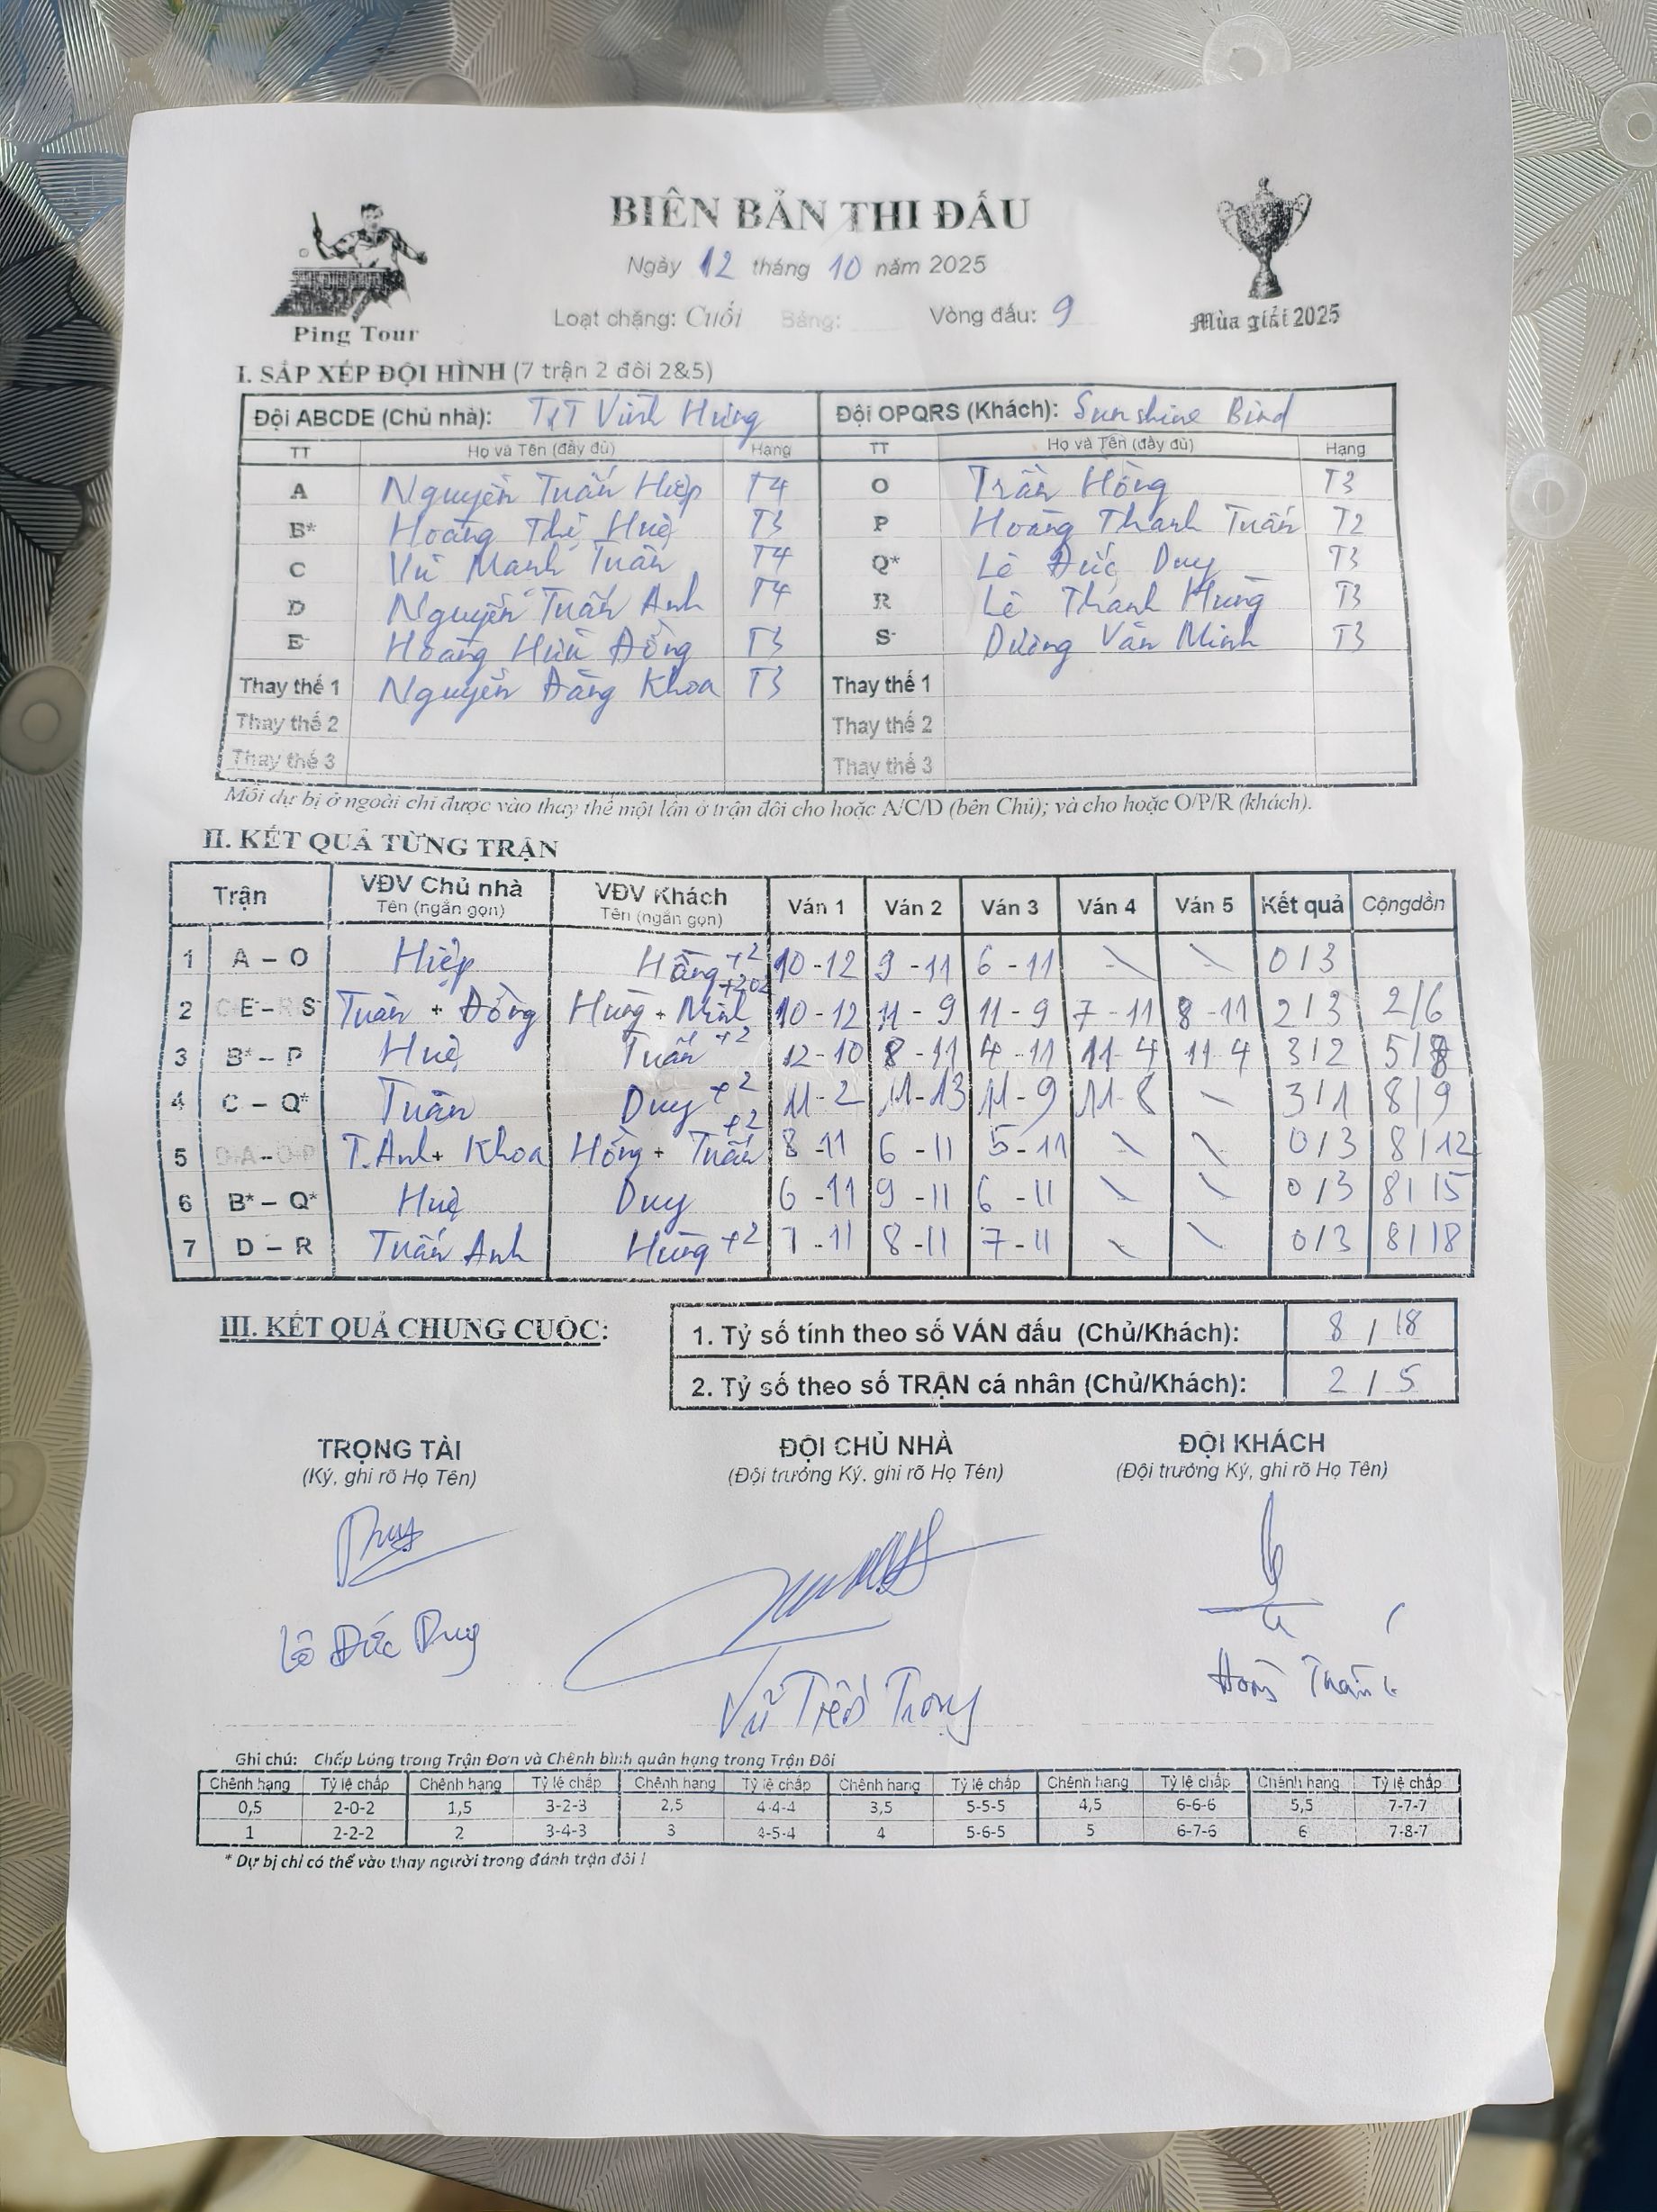 BIÊN BẢN THI ĐẤU
Ngày 12 tháng 10 năm 2025
Loạt chặng: Cuối Bảng: Vòng đấu: 9
Ping Tour
Mùa giải 2025
I. SẮP XẾP ĐỘI HÌNH (7 trận 2 đôi 2&5)
Đội ABCDE (Chủ nhà): T&T Vĩnh Hưng Đội OPQRS (Khách): Sunshine Bird
TT Họ và Tên (đầy đủ) Hạng TT Họ và Tên (đầy đủ) Hạng
A Nguyễn Tuấn Hiệp T4 O Trần Hồng T3
B* Hoàng Thị Huệ T3 P Hoàng Thanh Tuấn T2
C Vũ Mạnh Tuân T4 Q* Lê Đức Duy T3
D Nguyễn Tuấn Anh T4 R Lê Thanh Hưng T3
E- Hoàng Hữu Đồng T3 S- Dương Văn Minh T3
Thay thế 1 Nguyễn Đăng Khoa T3 Thay thế 1
Thay thế 2 Thay thế 2
Thay thế 3 Thay thế 3
Mỗi dự bị ở ngoài chỉ được vào thay thế một lần ở trận đôi cho hoặc A/C/D (bên Chủ); và cho hoặc O/P/R (khách).
II. KẾT QUẢ TỪNG TRẬN
Trận VĐV Chủ nhà VĐV Khách Ván 1 Ván 2 Ván 3 Ván 4 Ván 5 Kết quả Cộngdồn
Tên (ngắn gọn) Tên (ngắn gọn)
1 A – O Hiệp Hồng +2 10-12 9-11 6-11 \ \ 0/3
2 C-E- – R-S- Tuân + Đồng Hưng + Minh +202 10-12 11-9 11-9 7-11 8-11 2/3 2/6
3 B* – P Huệ Tuấn +2 12-10 8-11 4-11 11-4 11-4 3/2 5/8
4 C – Q* Tuân Duy +2 11-2 11-13 11-9 11-8 \ 3/1 8/9
5 D-A – O-P T.Anh + Khoa Hồng + Tuấn +2 8-11 6-11 5-11 \ \ 0/3 8/12
6 B* – Q* Huệ Duy 6-11 9-11 6-11 \ \ 0/3 8/15
7 D – R Tuấn Anh Hưng +2 7-11 8-11 7-11 \ \ 0/3 8/18
III. KẾT QUẢ CHUNG CUỘC:
1. Tỷ số tính theo số VÁN đấu (Chủ/Khách): 8 / 18
2. Tỷ số theo số TRẬN cá nhân (Chủ/Khách): 2 / 5
TRỌNG TÀI ĐỘI CHỦ NHÀ ĐỘI KHÁCH
(Ký, ghi rõ Họ Tên) (Đội trưởng Ký, ghi rõ Họ Tên) (Đội trưởng Ký, ghi rõ Họ Tên)
Lê Đức Duy
Ghi chú: Chấp Lủng trong Trận Đơn và Chênh bình quân hạng trong Trận Đôi
Chênh hạng Tỷ lệ chấp Chênh hạng Tỷ lệ chấp Chênh hạng Tỷ lệ chấp Chênh hạng Tỷ lệ chấp Chênh hạng Tỷ lệ chấp Chênh hạng Tỷ lệ chấp
0,5 2-0-2 1,5 3-2-3 2,5 4-4-4 3,5 5-5-5 4,5 6-6-6 5,5 7-7-7
1 2-2-2 2 3-4-3 3 4-5-4 4 5-6-5 5 6-7-6 6 7-8-7
* Dự bị chỉ có thể vào thay người trong đánh trận đôi !